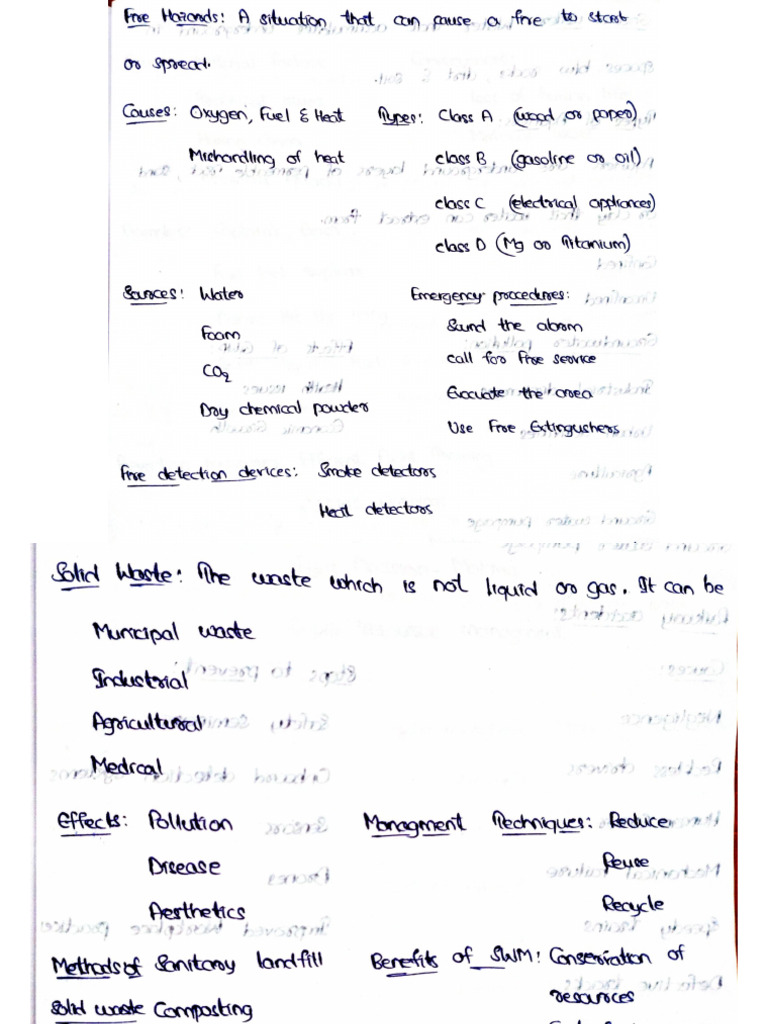 Fire Hazards: A situation that can pause a fire to start
or spread.
Causes: Oxygen, Fuel & Heat
Mishandling of heat
Types: Class A (wood or paper)
class B (gasoline or oil)
class C (electrical appliances)
class D (Mg or Titanium)
Sources: Water
Foam
CO2
Dry chemical powder
Emergency procedures:
Sound the alarm
call for fire service
Evacuate the area
Use Fire Extingushers
Fire detection devices: Smoke detectors
Heat detectors
Solid Waste: The waste which is not liquid or gas. It can be
Municipal waste
Industrial
Agricultural
Medical
Effects: Pollution
Disease
Aesthetics
Managment Techniques: Reduce
Reuse
Recycle
Methods of Sanitary landfill
Solid waste Composting
Benefits of SWM: Conservation of
resources